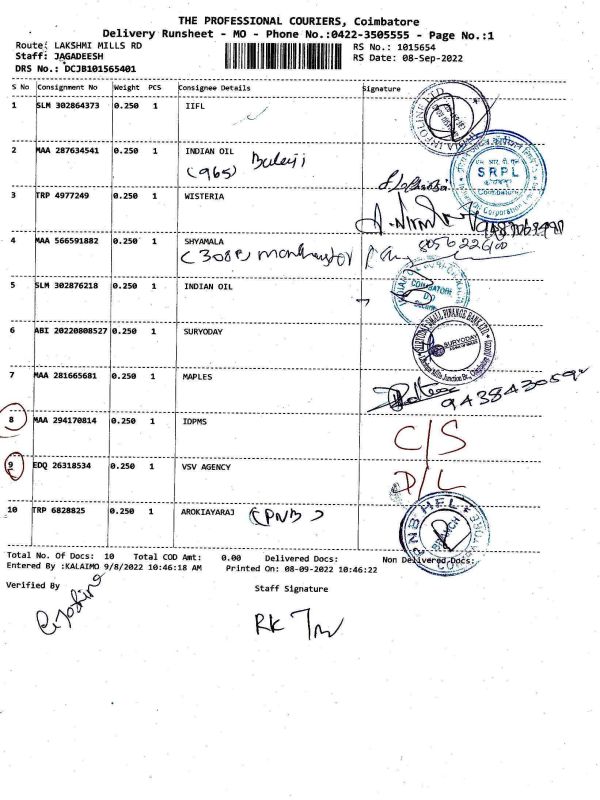 THE PROFESSIONAL COURIERS, Coimbatore
Delivery Runsheet - MO - Phone No.:0422-3505555 - Page No.:1
Route: LAKSHMI MILLS RD
RS No.: 1015654
Staff: JAGADEESH
RS Date: 08-Sep-2022
DRS No.: DCJB101565401
S No Consignment No Weight PCS Consignee Details Signature
1 SLM 302864373 0.250 1 IIFL
2 MAA 287634541 0.250 1 INDIAN OIL
(965) Balaji
SRPL
Coimbatore
3 TRP 4977249 0.250 1 WISTERIA
4 MAA 566591882 0.250 1 SHYAMALA
(308P)
5 SLM 302876218 0.250 1 INDIAN OIL
COIMBATORE
DO
6 ABI 20220808527 0.250 1 SURYODAY
SURYODAY
7 MAA 281665681 0.250 1 MAPLES
8 MAA 294170814 0.250 1 IDPMS
C/S
9 EDQ 26318534 0.250 1 VSV AGENCY
D/L
10 TRP 6828825 0.250 1 AROKIAYARAJ (PNB)
PNB HFL
Total No. Of Docs: 10 Total COD Amt: 0.00 Delivered Docs: Non Delivered Docs:
Entered By :KALAIMO 9/8/2022 10:46:18 AM Printed On: 08-09-2022 10:46:22
Verified By
Staff Signature
RK